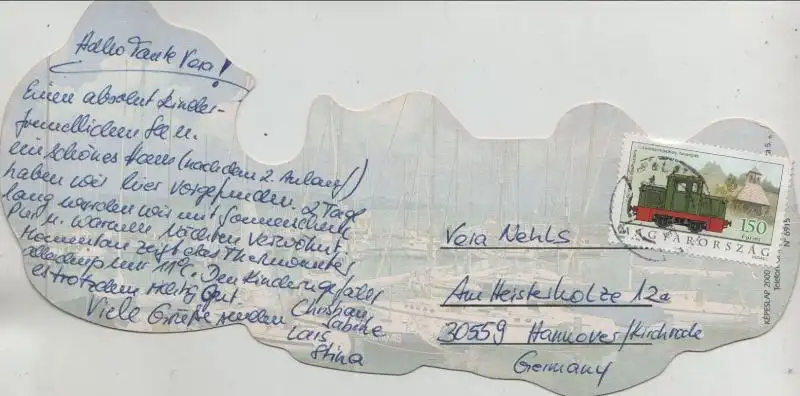 Hallo Tante Vera!
Einen absolut kinder-
freundlichen See u.
ein schönes Haus (nach dem 2. Anlauf)
haben wir hier vorgefunden. 2 Tage
lang wurden wir mit Sonnenschein
Pur u. warmen Nächten verwöhnt.
Momentan zeigt das Thermometer
allerdings nur 11°C. Den Kindern gefällt
es trotzdem richtig gut.
Viele Grüße senden Christian
Sabine
Lars
Stina
Vera Nehls
Am Heisterholze 12a
30559 Hannover/Kirchrode
Germany
150
Forint
MAGYARORSZÁG
KÉPESLAP 2000
Telefon
N° 6915